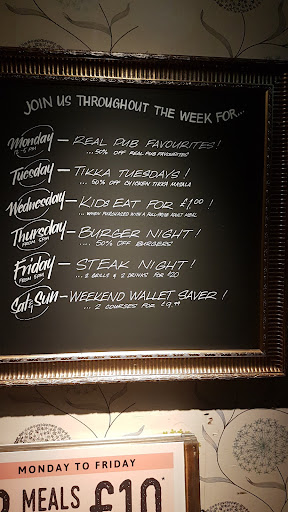 JOIN US THROUGHOUT THE WEEK FOR...
Monday — REAL PUB FAVOURITES!
...50% OFF REAL PUB FAVOURITES
Tuesday — TIKKA TUESDAYS!
...50% OFF CHICKEN TIKKA MASALA
Wednesday — KIDS EAT FOR £1.00!
...WHEN PURCHASED WITH A FULL-PRICE ADULT MEAL
Thursday — BURGER NIGHT!
FROM 5PM ...50% OFF BURGERS
Friday — STEAK NIGHT!
FROM 5PM ...2 GRILLS & 2 DRINKS FOR £20
Sat & Sun — WEEKEND WALLET SAVER!
...2 COURSES FOR £9.99
MONDAY TO FRIDAY
MEALS £10*